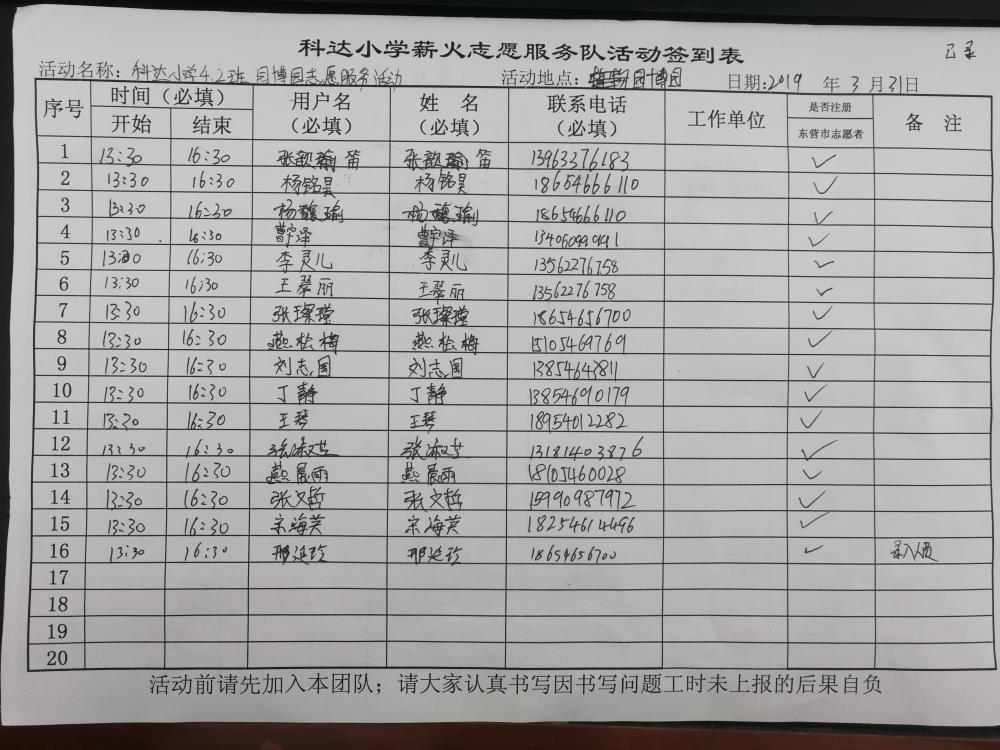 科达小学薪火志愿服务队活动签到表
已录
活动名称：科达小学4.2班 园博园志愿服务活动 活动地点：园博园 日期:2019 年 3 月 31日
序号 时间（必填） 用户名（必填） 姓 名（必填） 联系电话（必填） 工作单位 是否注册 备 注
开始 结束 东营市志愿者
1 13:30 16:30 张歆瑜笛 张歆瑜笛 13963376183 ✓
2 13:30 16:30 杨铭昊 杨铭昊 18654666110 ✓
3 13:30 16:30 杨馥瑜 杨馥瑜 18654666110 ✓
4 13:30 16:30 曹宇泽 曹宇泽 ✓
5 13:30 16:30 李灵儿 李灵儿 13562276758 ✓
6 13:30 16:30 王翠丽 王翠丽 13562276758 ✓
7 13:30 16:30 张璨瑩 张璨瑩 18654656700 ✓
8 13:30 16:30 燕松梅 燕松梅 15105469769 ✓
9 13:30 16:30 刘志国 刘志国 ✓
10 13:30 16:30 丁静 丁静 13854690179 ✓
11 13:30 16:30 王琴 王琴 18954012282 ✓
12 13:30 16:30 张淑芝 张淑芝 13181403876 ✓
13 13:30 16:30 燕晨雨 燕晨雨 18105460028 ✓
14 13:30 16:30 张文哲 张文哲 15990987972 ✓
15 13:30 16:30 宋海英 宋海英 18254614496 ✓
16 13:30 16:30 邢延玲 邢延玲 18654656700 ✓ 录入人员
17
18
19
20
活动前请先加入本团队；请大家认真书写因书写问题工时未上报的后果自负